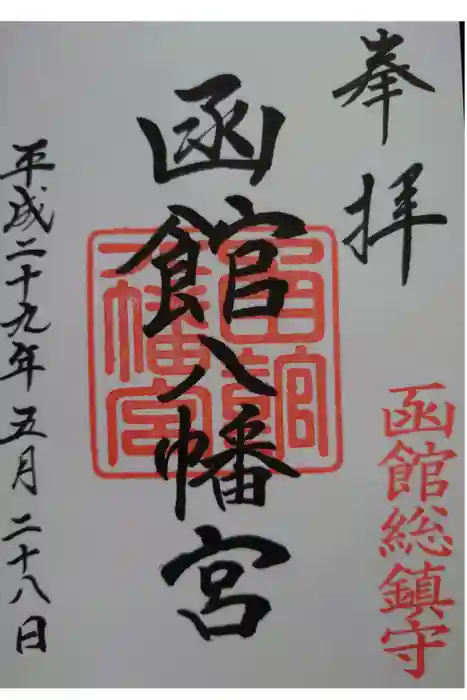 奉拝
函館総鎮守
函館八幡宮
函館八幡宮
平成二十九年五月二十八日